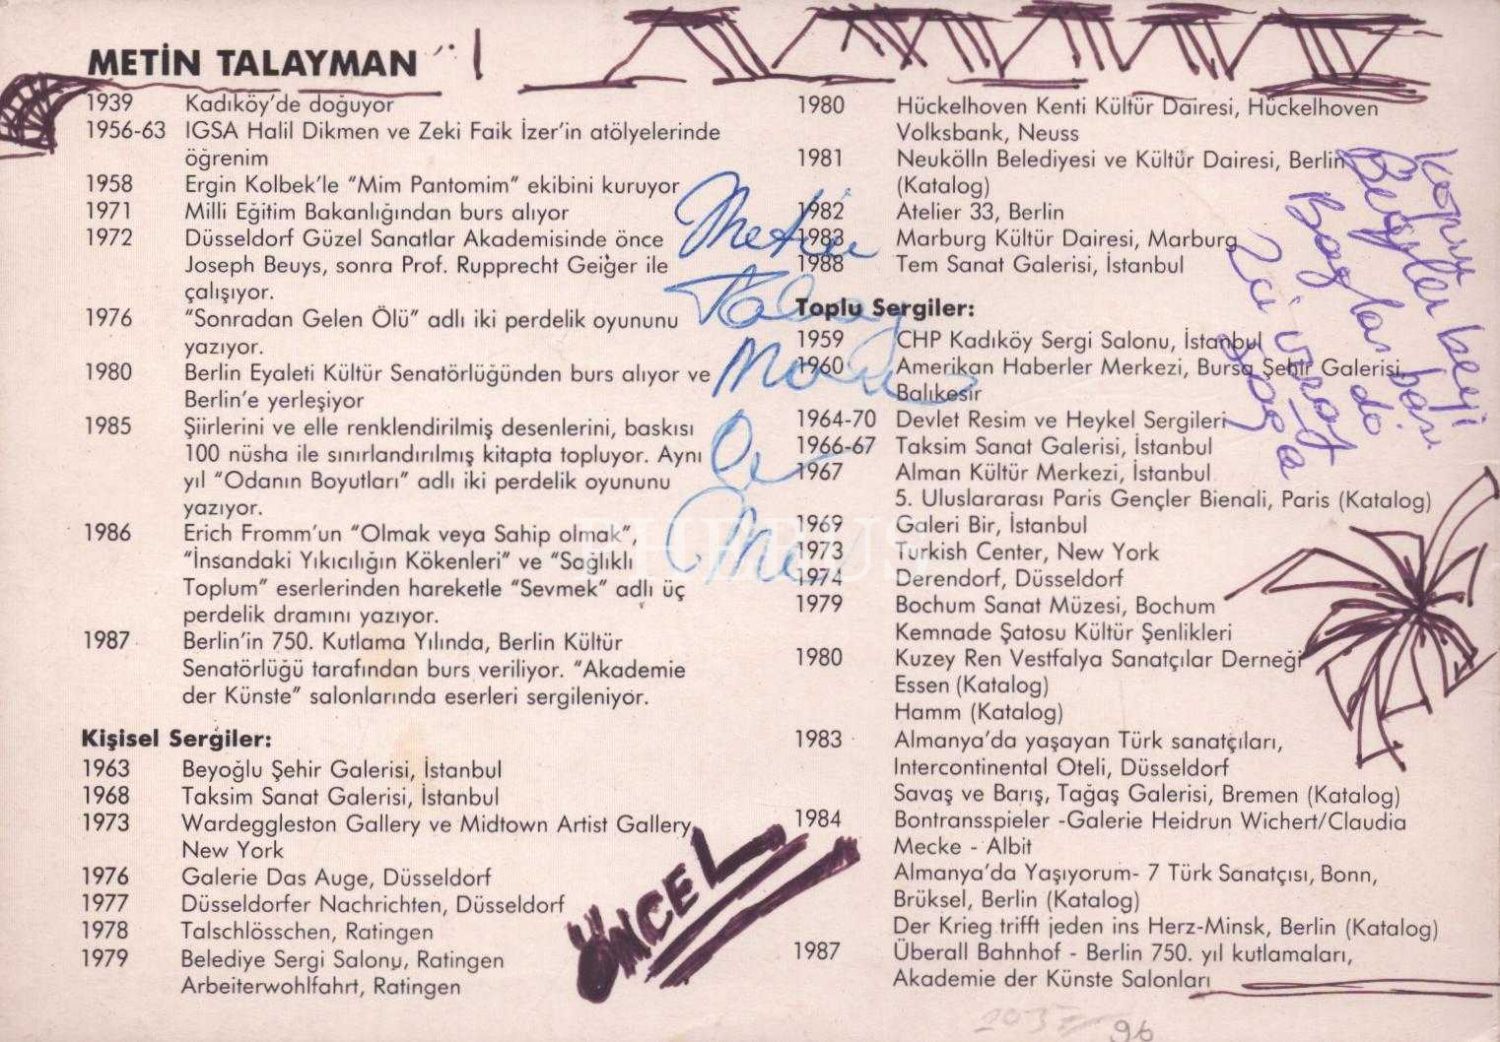 METİN TALAYMAN
1939 Kadıköy'de doğuyor
1956-63 IGSA Halil Dikmen ve Zeki Faik İzer'in atölyelerinde
öğrenim
1958 Ergin Kolbek'le "Mim Pantomim" ekibini kuruyor
1971 Milli Eğitim Bakanlığından burs alıyor
1972 Düsseldorf Güzel Sanatlar Akademisinde önce
Joseph Beuys, sonra Prof. Rupprecht Geiger ile
çalışıyor.
1976 "Sonradan Gelen Ölü" adlı iki perdelik oyununu
yazıyor.
1980 Berlin Eyaleti Kültür Senatörlüğünden burs alıyor ve
Berlin'e yerleşiyor
1985 Şiirlerini ve elle renklendirilmiş desenlerini, baskısı
100 nüsha ile sınırlandırılmış kitapta topluyor. Aynı
yıl "Odanın Boyutları" adlı iki perdelik oyununu
yazıyor.
1986 Erich Fromm'un "Olmak veya Sahip olmak",
"İnsandaki Yıkıcılığın Kökenleri" ve "Sağlıklı
Toplum" eserlerinden hareketle "Sevmek" adlı üç
perdelik dramını yazıyor.
1987 Berlin'in 750. Kutlama Yılında, Berlin Kültür
Senatörlüğü tarafından burs veriliyor. "Akademie
der Künste" salonlarında eserleri sergileniyor.
Kişisel Sergiler:
1963 Beyoğlu Şehir Galerisi, İstanbul
1968 Taksim Sanat Galerisi, İstanbul
1973 Wardeggleston Gallery ve Midtown Artist Gallery,
New York
1976 Galerie Das Auge, Düsseldorf
1977 Düsseldorfer Nachrichten, Düsseldorf
1978 Talschlösschen, Ratingen
1979 Belediye Sergi Salonu, Ratingen
Arbeiterwohlfahrt, Ratingen
1980 Hückelhoven Kenti Kültür Dairesi, Hückelhoven
Volksbank, Neuss
1981 Neukölln Belediyesi ve Kültür Dairesi, Berlin
(Katalog)
1982 Atelier 33, Berlin
1983 Marburg Kültür Dairesi, Marburg
1988 Tem Sanat Galerisi, İstanbul
Toplu Sergiler:
1959 CHP Kadıköy Sergi Salonu, İstanbul
1960 Amerikan Haberler Merkezi, Bursa Şehir Galerisi,
Balıkesir
1964-70 Devlet Resim ve Heykel Sergileri
1966-67 Taksim Sanat Galerisi, İstanbul
1967 Alman Kültür Merkezi, İstanbul
5. Uluslararası Paris Gençler Bienali, Paris (Katalog)
1969 Galeri Bir, İstanbul
1973 Turkish Center, New York
1974 Derendorf, Düsseldorf
1979 Bochum Sanat Müzesi, Bochum
Kemnade Şatosu Kültür Şenlikleri
1980 Kuzey Ren Vestfalya Sanatçılar Derneği
Essen (Katalog)
Hamm (Katalog)
1983 Almanya'da yaşayan Türk sanatçıları,
Intercontinental Oteli, Düsseldorf
Savaş ve Barış, Tağaş Galerisi, Bremen (Katalog)
1984 Bontransspieler -Galerie Heidrun Wichert/Claudia
Mecke - Albit
Almanya'da Yaşıyorum- 7 Türk Sanatçısı, Bonn,
Brüksel, Berlin (Katalog)
Der Krieg trifft jeden ins Herz-Minsk, Berlin (Katalog)
1987 Überall Bahnhof - Berlin 750. yıl kutlamaları,
Akademie der Künste Salonları
Metin
ÖNCEL
PHEBUS
96